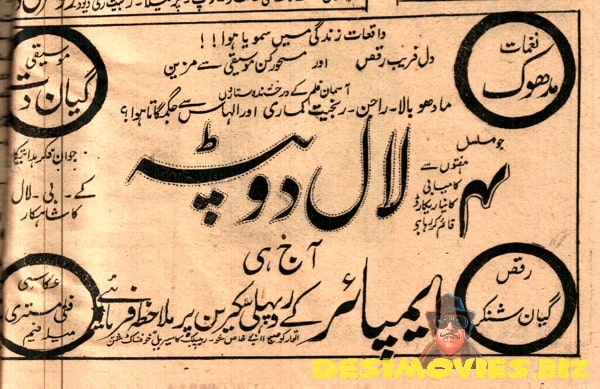 واقعات زندگی میں سمویا ہوا!!
دل فریب رقص اور مسحور کن موسیقی سے مزین
آسمان فلم کے درخشندہ ستاروں
مادھو بالا۔ راجن۔ رنجیت کماری اور الہاس سے جگمگاتا ہوا؟
نغمات
مدھوک
موسیقی
گیان دت
جو مسلسل
۴ ہفتوں سے
کامیابی
کا نیا ریکارڈ
قائم کر رہا ہے
لال دوپٹہ
جوان فکر ہدایتکار
کے۔ بی۔ لال
کا شاہکار
آج ہی
ایمپائر کے روپہلی سکرین پر ملاحظہ فرمائیے
رقص
گیان شنکر
عکاسی
مستری
اتوار کو صبح
DESIMOVIES.BIZ